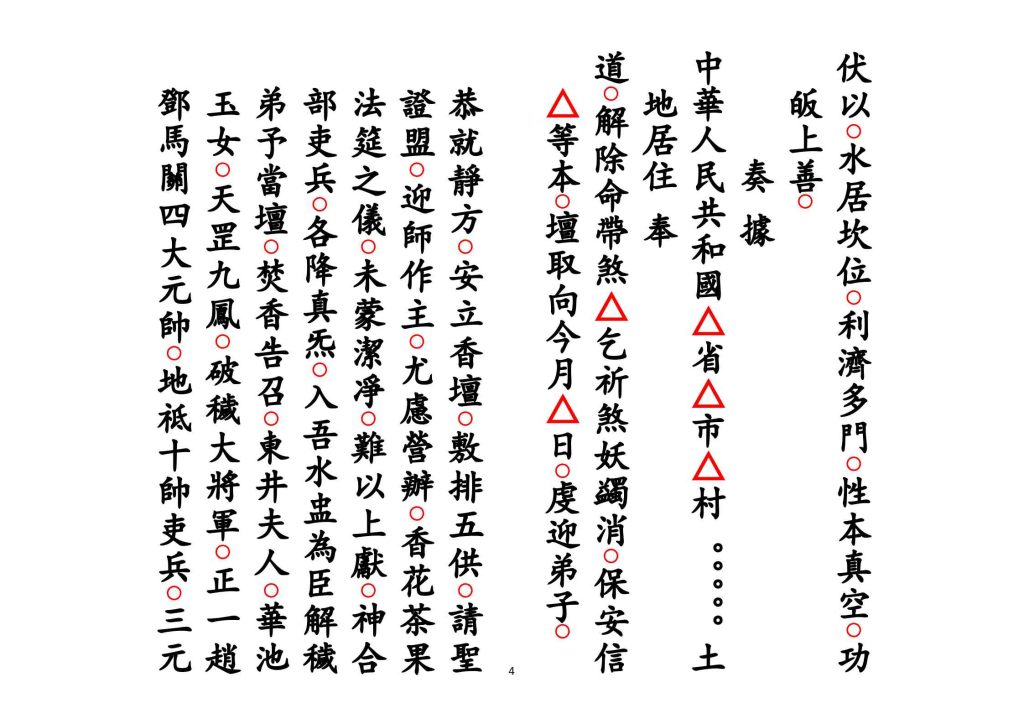 伏以○水居坎位○利濟多門○性本真空○功
皈上善○
奏據
中華人民共和國△省△市△村。。。。。土
地居住 奉
道○解除命帶煞△乞祈煞妖蠲消○保安信
△等本○壇取向今月△日○虔迎弟子○
恭就靜方○安立香壇○敷排五供○請聖
證盟○迎師作主○尤慮營辦○香花茶果
法筵之儀○未蒙潔淨○難以上獻○神合
部吏兵○各降真炁○入吾水盅為臣解穢
弟予當壇○焚香告召○東井夫人○華池
玉女○天罡九鳳○破穢大將軍○正一趙
鄧馬關四大元帥○地祇十帥吏兵○三元
4